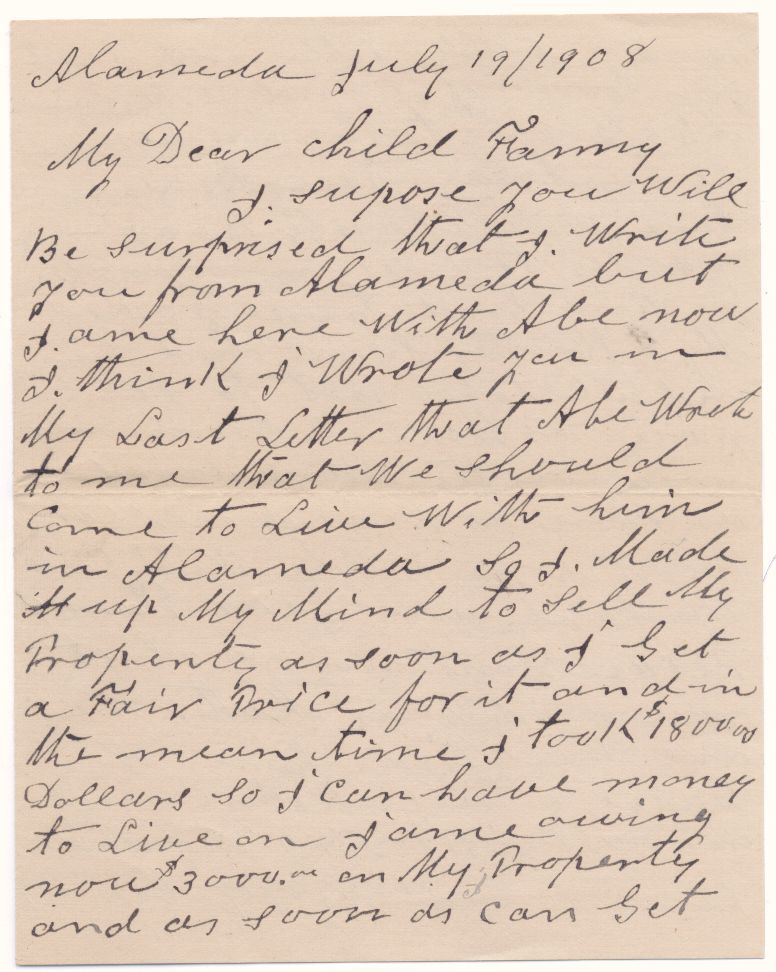 Alameda July 19/1908
My Dear child Fanny
I. supose you Will
Be surprised that I. Write
you from Alameda but
I. ame here With Abe now
I. think I Wrote you in
My Last Letter that Abe Wrote
to me that We should
Come to Live With him
in Alameda so I. Made
up My Mind to sell My
Property as soon as I Get
a Fair Price for it and in
the mean time I took $1800.00
Dollars so I can have money
to Live on I ame owing
now $3000.00 on My Property
and as soon as I can Get